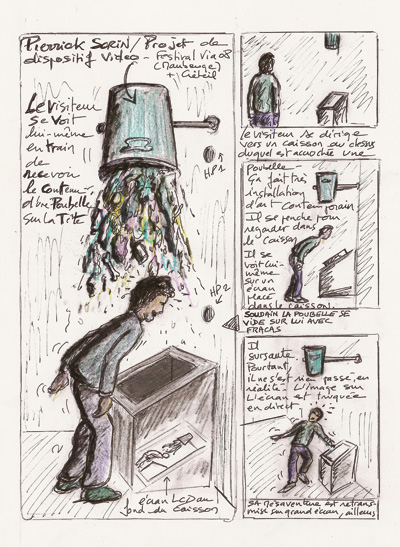 Pierrick Sorin / Projet de
dispositif vidéo - Festival Via 08
(Maubeuge)
+ Créteil
Le visiteur
se voit
lui-même
en train
de
recevoir
le contenu
d'une Poubelle
sur la Tête
HP1
HP2
écran LCD au
fond du caisson
Le visiteur se dirige
vers un caisson au dessus
duquel est accrochée une
Poubelle -
Ça fait très
installation
d'art contemporain
Il se penche pour
regarder dans
le caisson
Il se
voit lui-
même
sur un
écran
placé
dans le caisson.
SOUDAIN LA POUBELLE SE
VIDE SUR LUI AVEC
FRACAS
Il
sursaute
Pourtant,
il ne s'est rien passé, en
réalité - L'image sur
l'écran est truquée
en direct
SA MÉSAVENTURE EST RETRANS-
MISE SUR grand écran, ailleurs